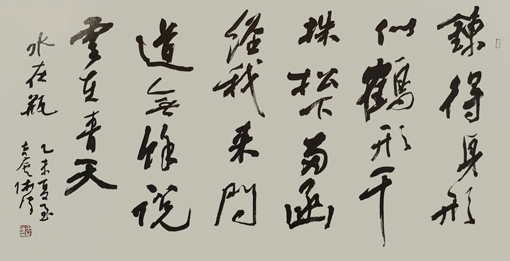 鍊得身形
似鶴形千
株松下兩函
經我来問
道無餘説
雲在青天
水在瓶
乙未夏至